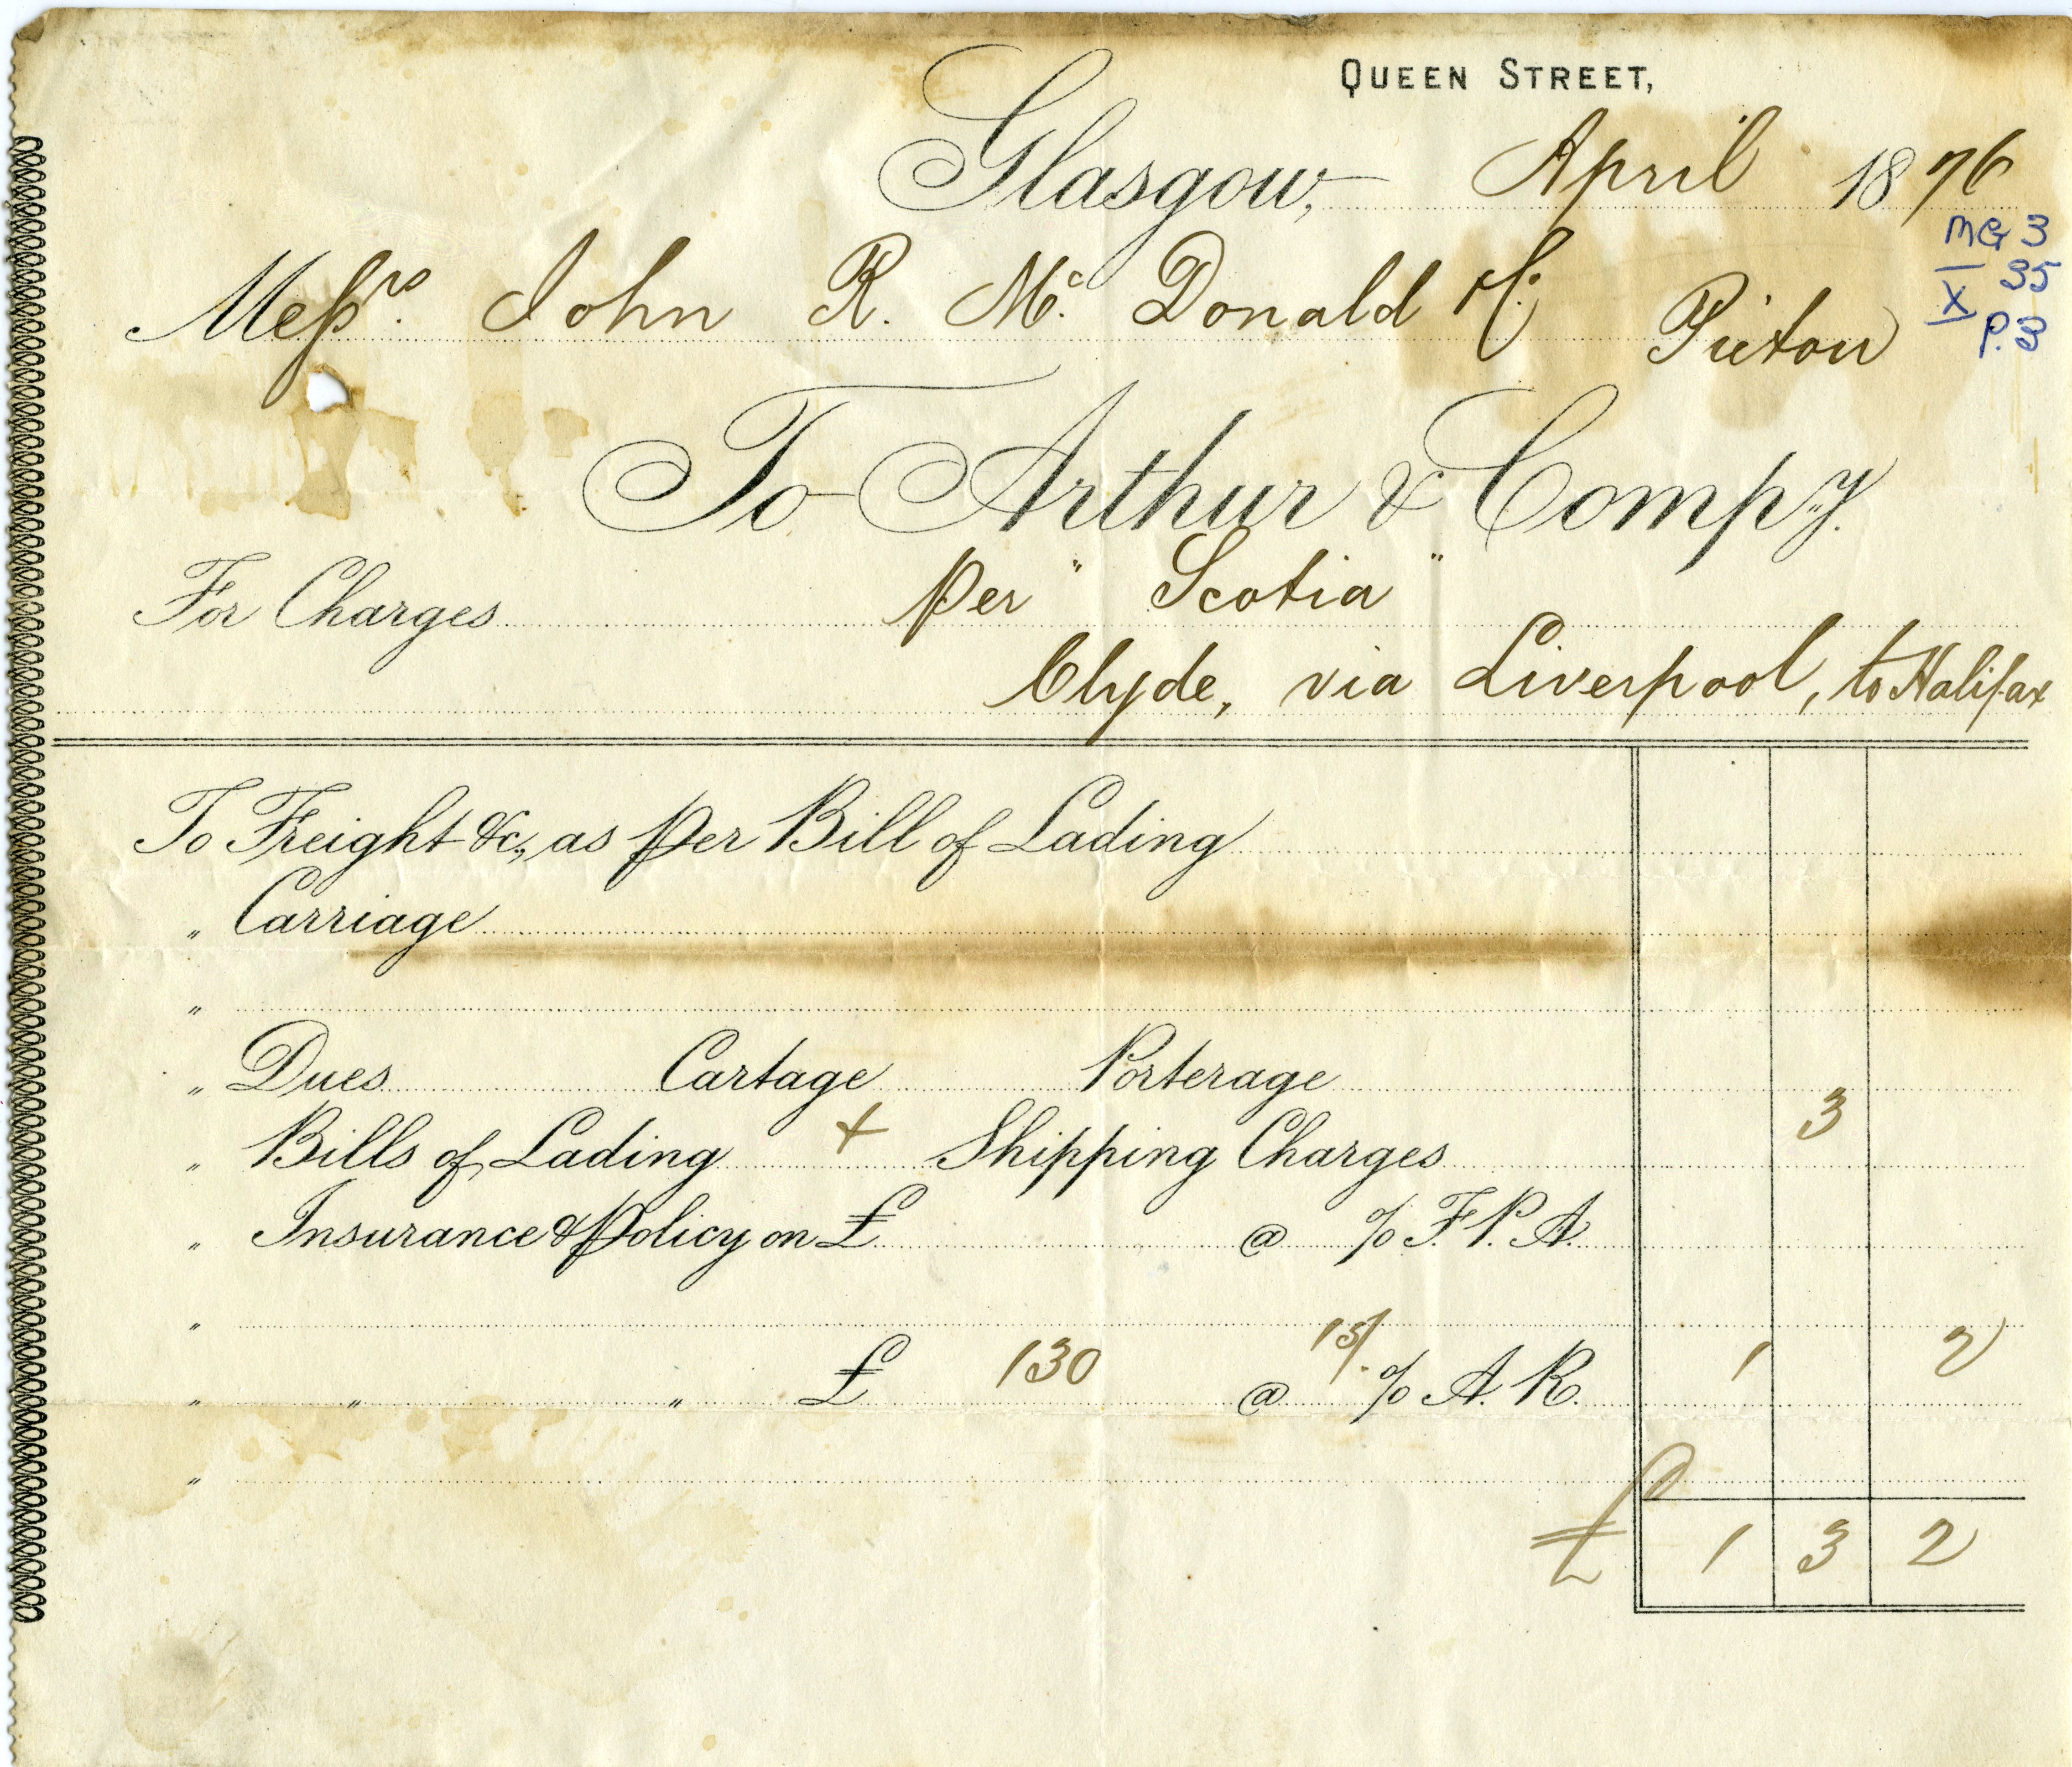 QUEEN STREET,
Glasgow, April 1876
MG 3
I 35
X
P.3
Messrs. John R. Mc. Donald Pictou
To Arthur & Compy.
For Charges per "Scotia"
Clyde, via Liverpool, to Halifax
To Freight &c., as per Bill of Lading
" Carriage
"
" Dues Cartage Porterage
" Bills of Lading + Shipping Charges 3
" Insurance & Policy on £ @ % F. P. A.
"
" " " £ 130 @ 15/ % A. R. 1 2
"
£ 1 3 2